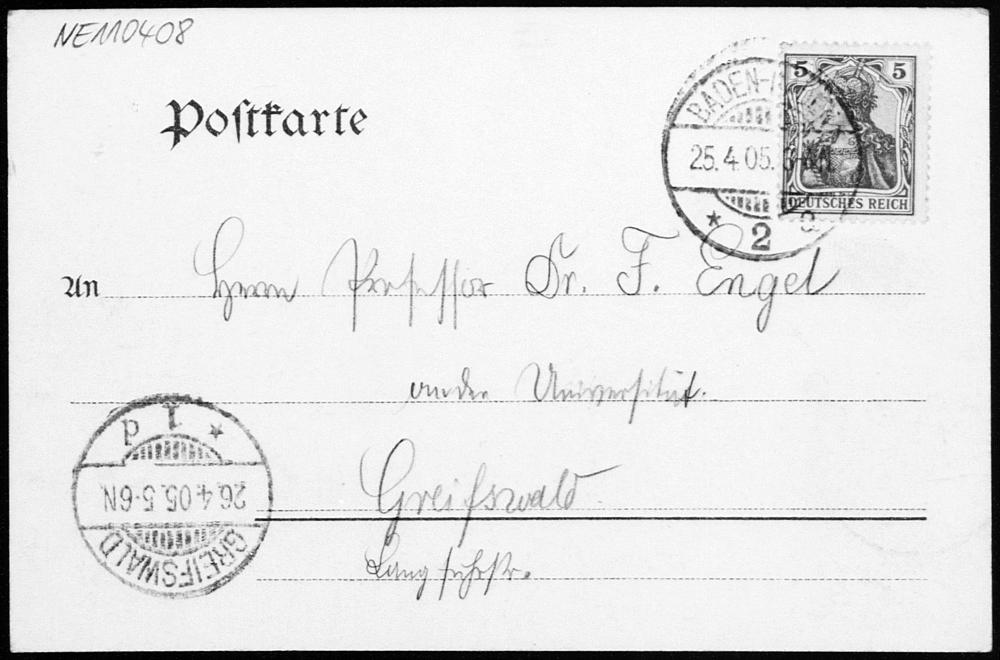 NE110408
Postkarte
5 5
DEUTSCHES REICH
BADEN-
25.4.05.
* 2
An Herrn Professor Dr. F. Engel
an der Universität.
Greifswald
Langfuhrstr.
* 1 d
26.4.05.5-6N
GREIFSWALD